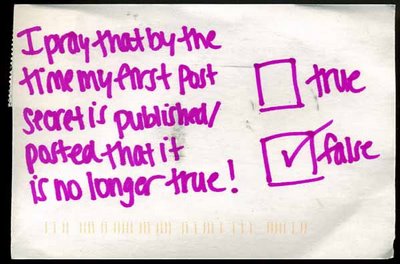 I pray that by the
time my first post
secret is published/
posted that it
is no longer true!
true
false